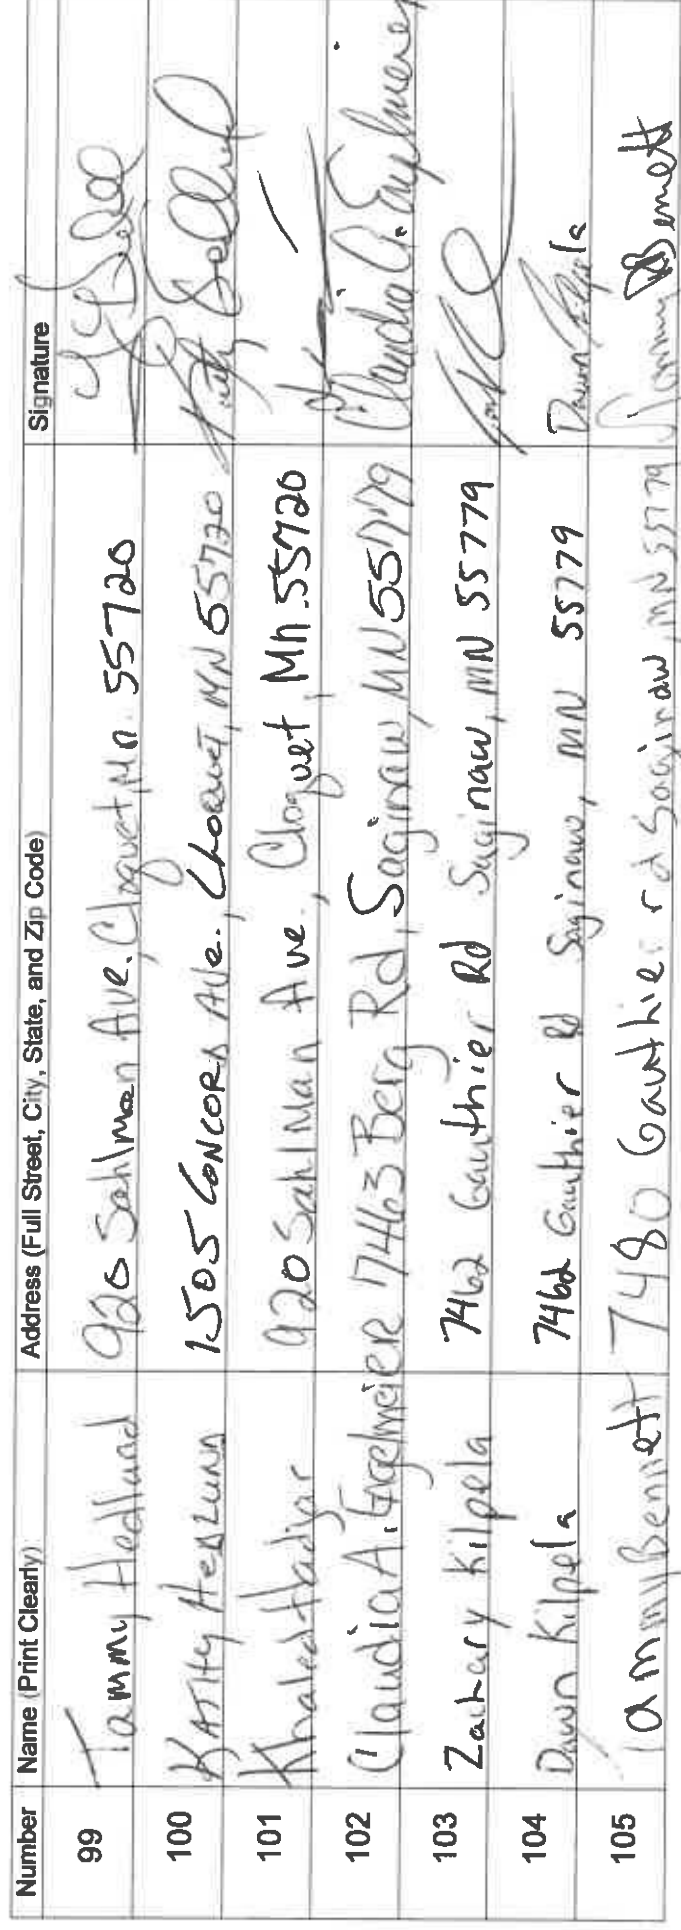 Number Name (Print Clearly) Address (Full Street, City, State, and Zip Code) Signature
99 Tammy Hedlund 920 Sahlman Ave. Cloquet, Mn. 55720
100 KATHY HEDLUND 1505 CONCORD AVE., CLOQUET, MN 55720 Kathy
101 Khaled Hadjar 920 Sahlman Ave., Cloquet, Mn. 55720
102 Claudia A. Engelmeier 7463 Berg Rd, Saginaw, MN 55779 Claudia A. Engelmeier
103 Zachary Kilpela 7462 Gauthier Rd Saginaw, MN 55779
104 Dawn Kilpela 7462 Gauthier Rd Saginaw, MN 55779 Dawn Kilpela
105 Tammy Bennett 7480 Gauthier rd Saginaw, MN 55779 Tammy Bennett